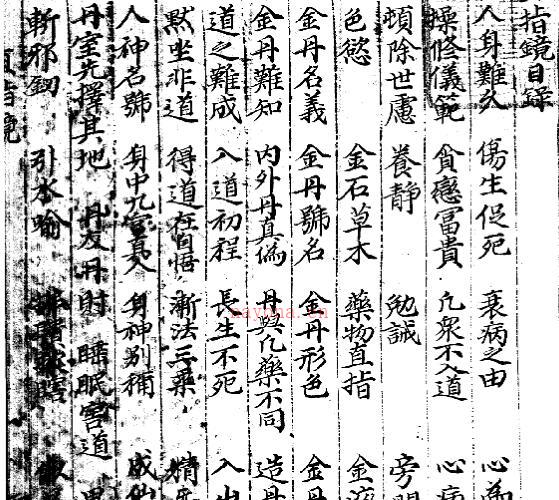 指鏡目錄
人身難久 傷生促死 衰病之由 心為
操修儀範 貪戀冨貴 凢衆不入道 心病
頓除世慮 養靜 勉誠 旁門
色慾 金石草木 藥物直指 金液
金丹名義 金丹號名 金丹形色 金
金丹難知 內外丹真偽 丹與凢藥不同 造丹
道之難成 入道初程 長生不死 入山
默坐非道 得道在自悟 漸法三藥 精
人神名號 身中九宮真人 身神别稱 成仙
丹室先擇其地 丹友丹財 睡眠害道
斬邪劔 引水喻